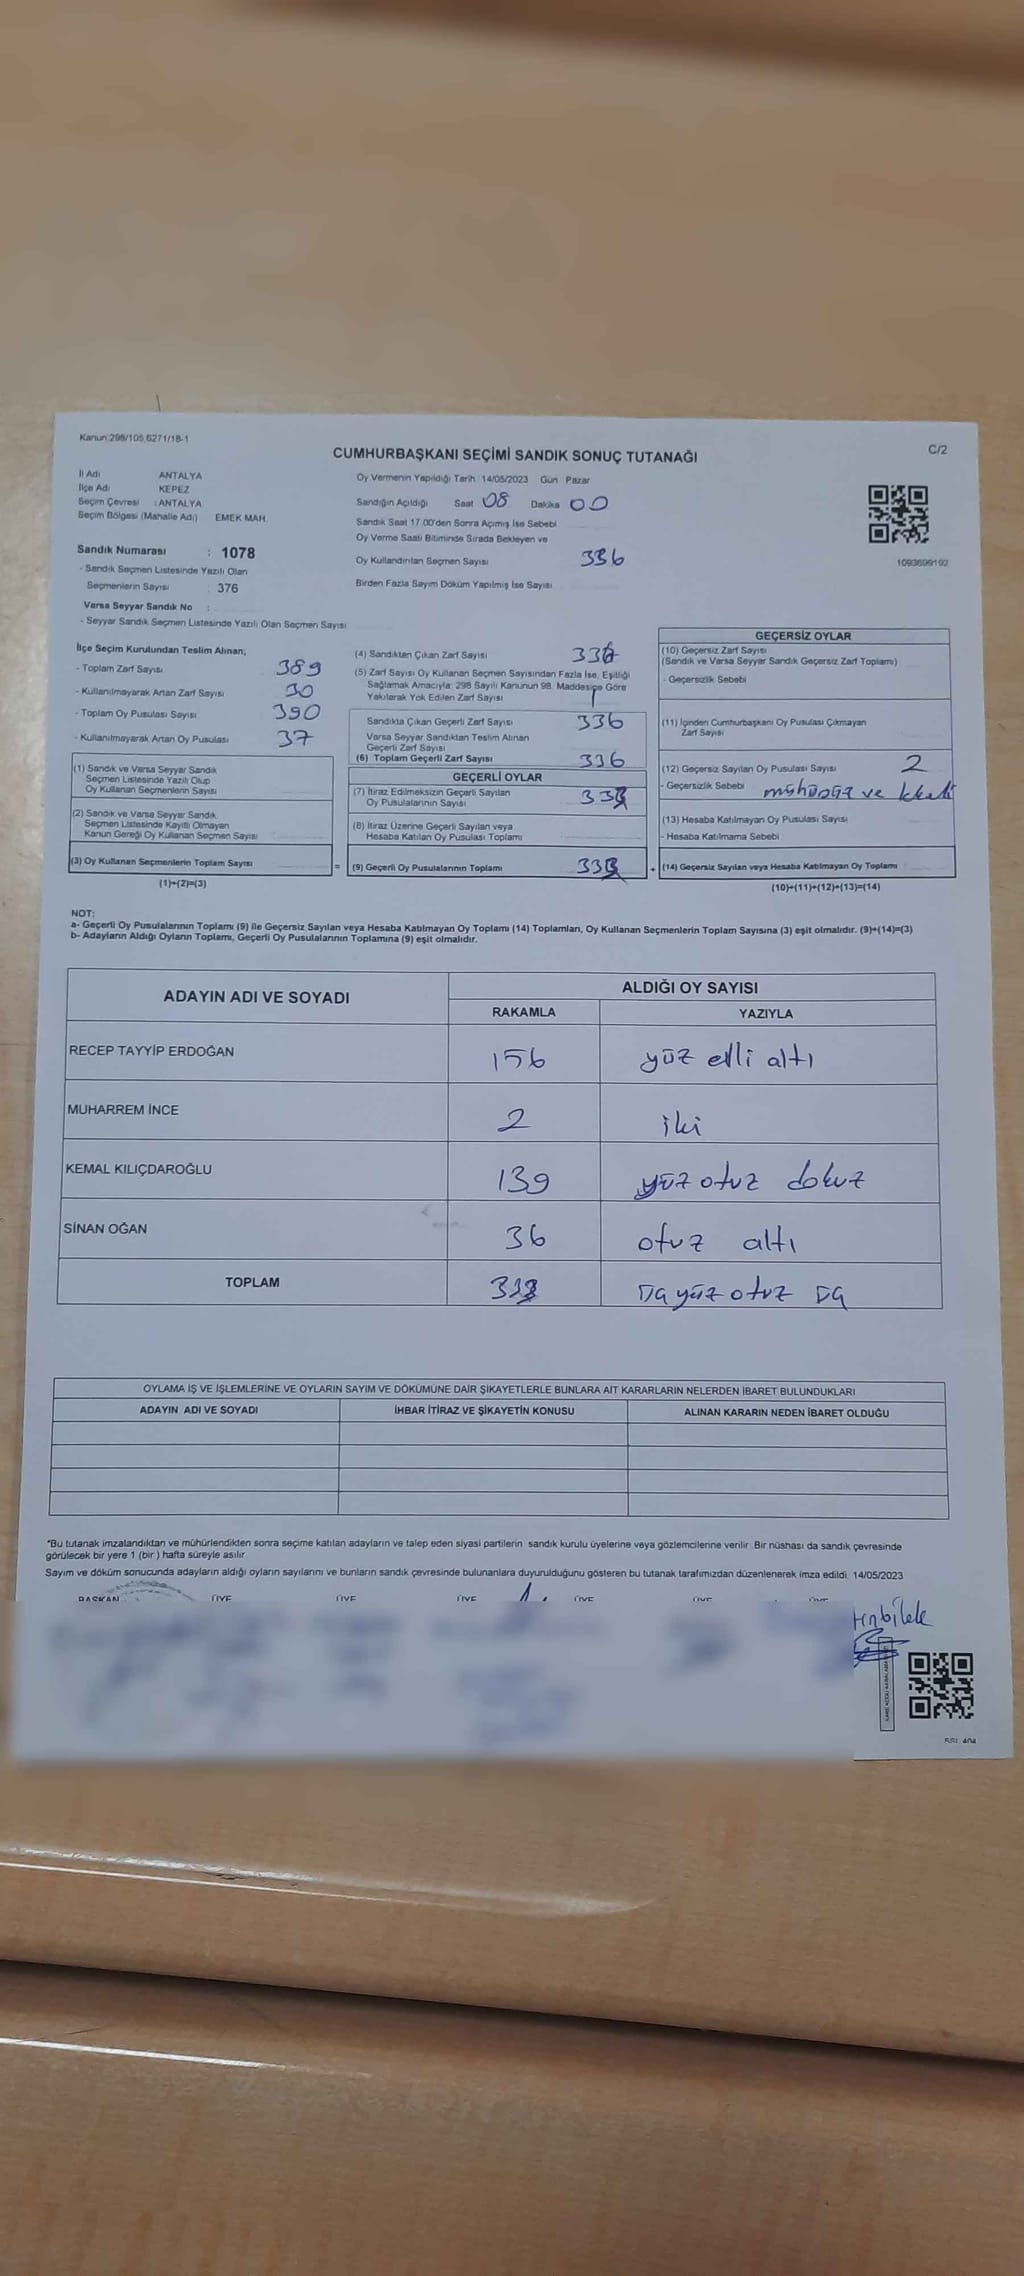 Kanun:298/105,6271/18-1
C/2
CUMHURBAŞKANI SEÇİMİ SANDIK SONUÇ TUTANAĞI
İl Adı ANTALYA
İlçe Adı KEPEZ
Seçim Çevresi : ANTALYA
Seçim Bölgesi (Mahalle Adı) EMEK MAH.
Sandık Numarası : 1078
- Sandık Seçmen Listesinde Yazılı Olan
Seçmenlerin Sayısı : 376
Varsa Seyyar Sandık No :
- Seyyar Sandık Seçmen Listesinde Yazılı Olan Seçmen Sayısı
Oy Vermenin Yapıldığı Tarih 14/05/2023 Gün Pazar
Sandığın Açıldığı Saat 08 Dakika 00
Sandık Saat 17.00'den Sonra Açmış İse Sebebi
Oy Verme Saati Bitiminde Sırada Bekleyen ve
Oy Kullandırılan Seçmen Sayısı 336
Birden Fazla Sayım Döküm Yapılmış İse Sayısı
1093699192
İlçe Seçim Kurulundan Teslim Alınan;
- Toplam Zarf Sayısı 389
- Kullanılmayarak Artan Zarf Sayısı 30
- Toplam Oy Pusulası Sayısı 390
- Kullanılmayarak Artan Oy Pusulası 37
(1) Sandık ve Varsa Seyyar Sandık
Seçmen Listesinde Yazılı Olup
Oy Kullanan Seçmenlerin Sayısı
(2) Sandık ve Varsa Seyyar Sandık
Seçmen Listesinde Kayıtlı Olmayan
Kanun Gereği Oy Kullanan Seçmen Sayısı
(3) Oy Kullanan Seçmenlerin Toplam Sayısı
(1)+(2)=(3)
(4) Sandıktan Çıkan Zarf Sayısı 336
(5) Zarf Sayısı Oy Kullanan Seçmen Sayısından Fazla İse, Eşitliği
Sağlamak Amacıyla; 298 Sayılı Kanunun 98. Maddesine Göre
Yakılarak Yok Edilen Zarf Sayısı
Sandıkta Çıkan Geçerli Zarf Sayısı 336
Varsa Seyyar Sandıktan Teslim Alınan
Geçerli Zarf Sayısı
(6) Toplam Geçerli Zarf Sayısı 336
GEÇERLİ OYLAR
(7) İtiraz Edilmeksizin Geçerli Sayılan
Oy Pusulalarının Sayısı 333
(8) İtiraz Üzerine Geçerli Sayılan veya
Hesaba Katılan Oy Pusulası Toplamı
= (9) Geçerli Oy Pusulalarının Toplamı 333 +
GEÇERSİZ OYLAR
(10) Geçersiz Zarf Sayısı
(Sandık ve Varsa Seyyar Sandık Geçersiz Zarf Toplamı)
- Geçersizlik Sebebi
(11) İçinden Cumhurbaşkanı Oy Pusulası Çıkmayan
Zarf Sayısı
(12) Geçersiz Sayılan Oy Pusulası Sayısı 2
- Geçersizlik Sebebi mühürsüz ve
(13) Hesaba Katılmayan Oy Pusulası Sayısı
- Hesaba Katılmama Sebebi
(14) Geçersiz Sayılan veya Hesaba Katılmayan Oy Toplamı
(10)+(11)+(12)+(13)=(14)
NOT:
a- Geçerli Oy Pusulalarının Toplamı (9) ile Geçersiz Sayılan veya Hesaba Katılmayan Oy Toplamı (14) Toplamları, Oy Kullanan Seçmenlerin Toplam Sayısına (3) eşit olmalıdır. (9)+(14)=(3)
b- Adayların Aldığı Oyların Toplamı, Geçerli Oy Pusulalarının Toplamına (9) eşit olmalıdır.
ADAYIN ADI VE SOYADI ALDIĞI OY SAYISI
RAKAMLA YAZIYLA
RECEP TAYYİP ERDOĞAN 156 yüz elli altı
MUHARREM İNCE 2 iki
KEMAL KILIÇDAROĞLU 139 yüz otuz dokuz
SİNAN OĞAN 36 otuz altı
TOPLAM 333 üç yüz otuz üç
OYLAMA İŞ VE İŞLEMLERİNE VE OYLARIN SAYIM VE DÖKÜMÜNE DAİR ŞİKAYETLERLE BUNLARA AİT KARARLARIN NELERDEN İBARET BULUNDUKLARI
ADAYIN ADI VE SOYADI İHBAR İTİRAZ VE ŞİKAYETİN KONUSU ALINAN KARARIN NEDEN İBARET OLDUĞU
*Bu tutanak imzalandıktan ve mühürlendikten sonra seçime katılan adayların ve talep eden siyasi partilerin sandık kurulu üyelerine veya gözlemcilerine verilir. Bir nüshası da sandık çevresinde
görülecek bir yere 1 (bir) hafta süreyle asılır.
Sayım ve döküm sonucunda adayların aldığı oyların sayılarını ve bunların sandık çevresinde bulunanlara duyurulduğunu gösteren bu tutanak tarafımızdan düzenlenerek imza edildi. 14/05/2023
BAŞKAN ÜYE ÜYE ÜYE ÜYE ÜYE ÜYE